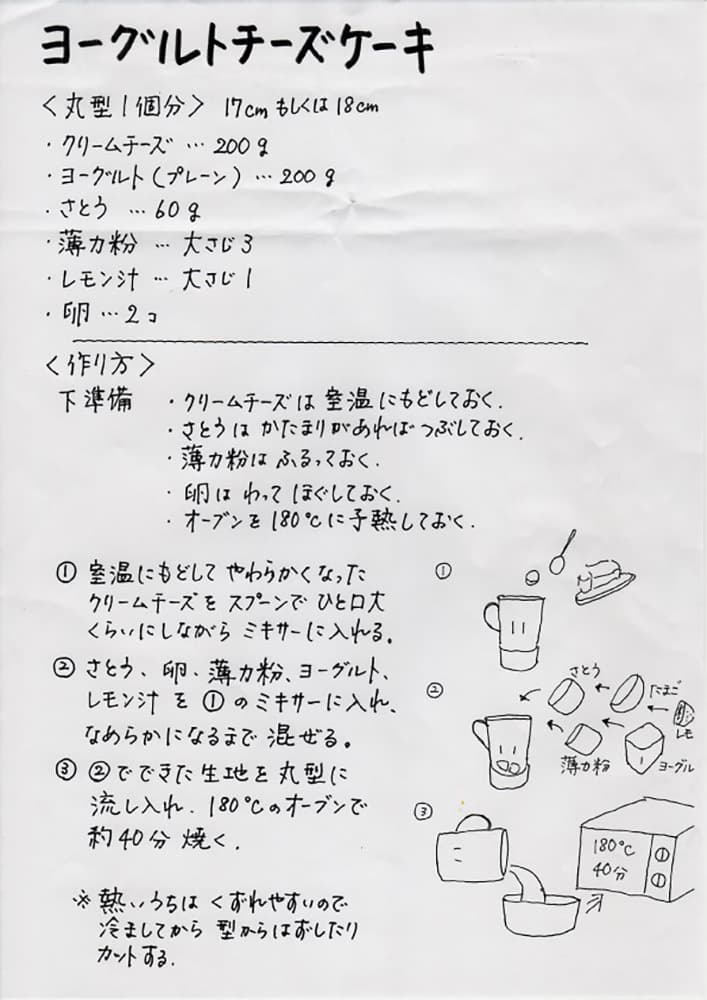 ヨーグルトチーズケーキ
〈丸型1個分〉 17cmもしくは18cm
・クリームチーズ…200g
・ヨーグルト(プレーン)…200g
・さとう…60g
・薄力粉…大さじ3
・レモン汁…大さじ1
・卵…2コ
〈作り方〉
下準備 ・クリームチーズは室温にもどしておく.
・さとうはかたまりがあればつぶしておく.
・薄力粉はふるっておく.
・卵はわってほぐしておく.
・オーブンを180℃に予熱しておく.
① 室温にもどしてやわらかくなった
クリームチーズをスプーンでひと口大
くらいにしながらミキサーに入れる。
② さとう、卵、薄力粉、ヨーグルト、
レモン汁を①のミキサーに入れ、
なめらかになるまで混ぜる。
③ ②でできた生地を丸型に
流し入れ.180℃のオーブンで
約40分焼く.
※熱いうちはくずれやすいので
冷ましてから型からはずしたり
カットする.
①
②
さとう
たまご
レモ
薄力粉
ヨーグル
③
180℃
40分